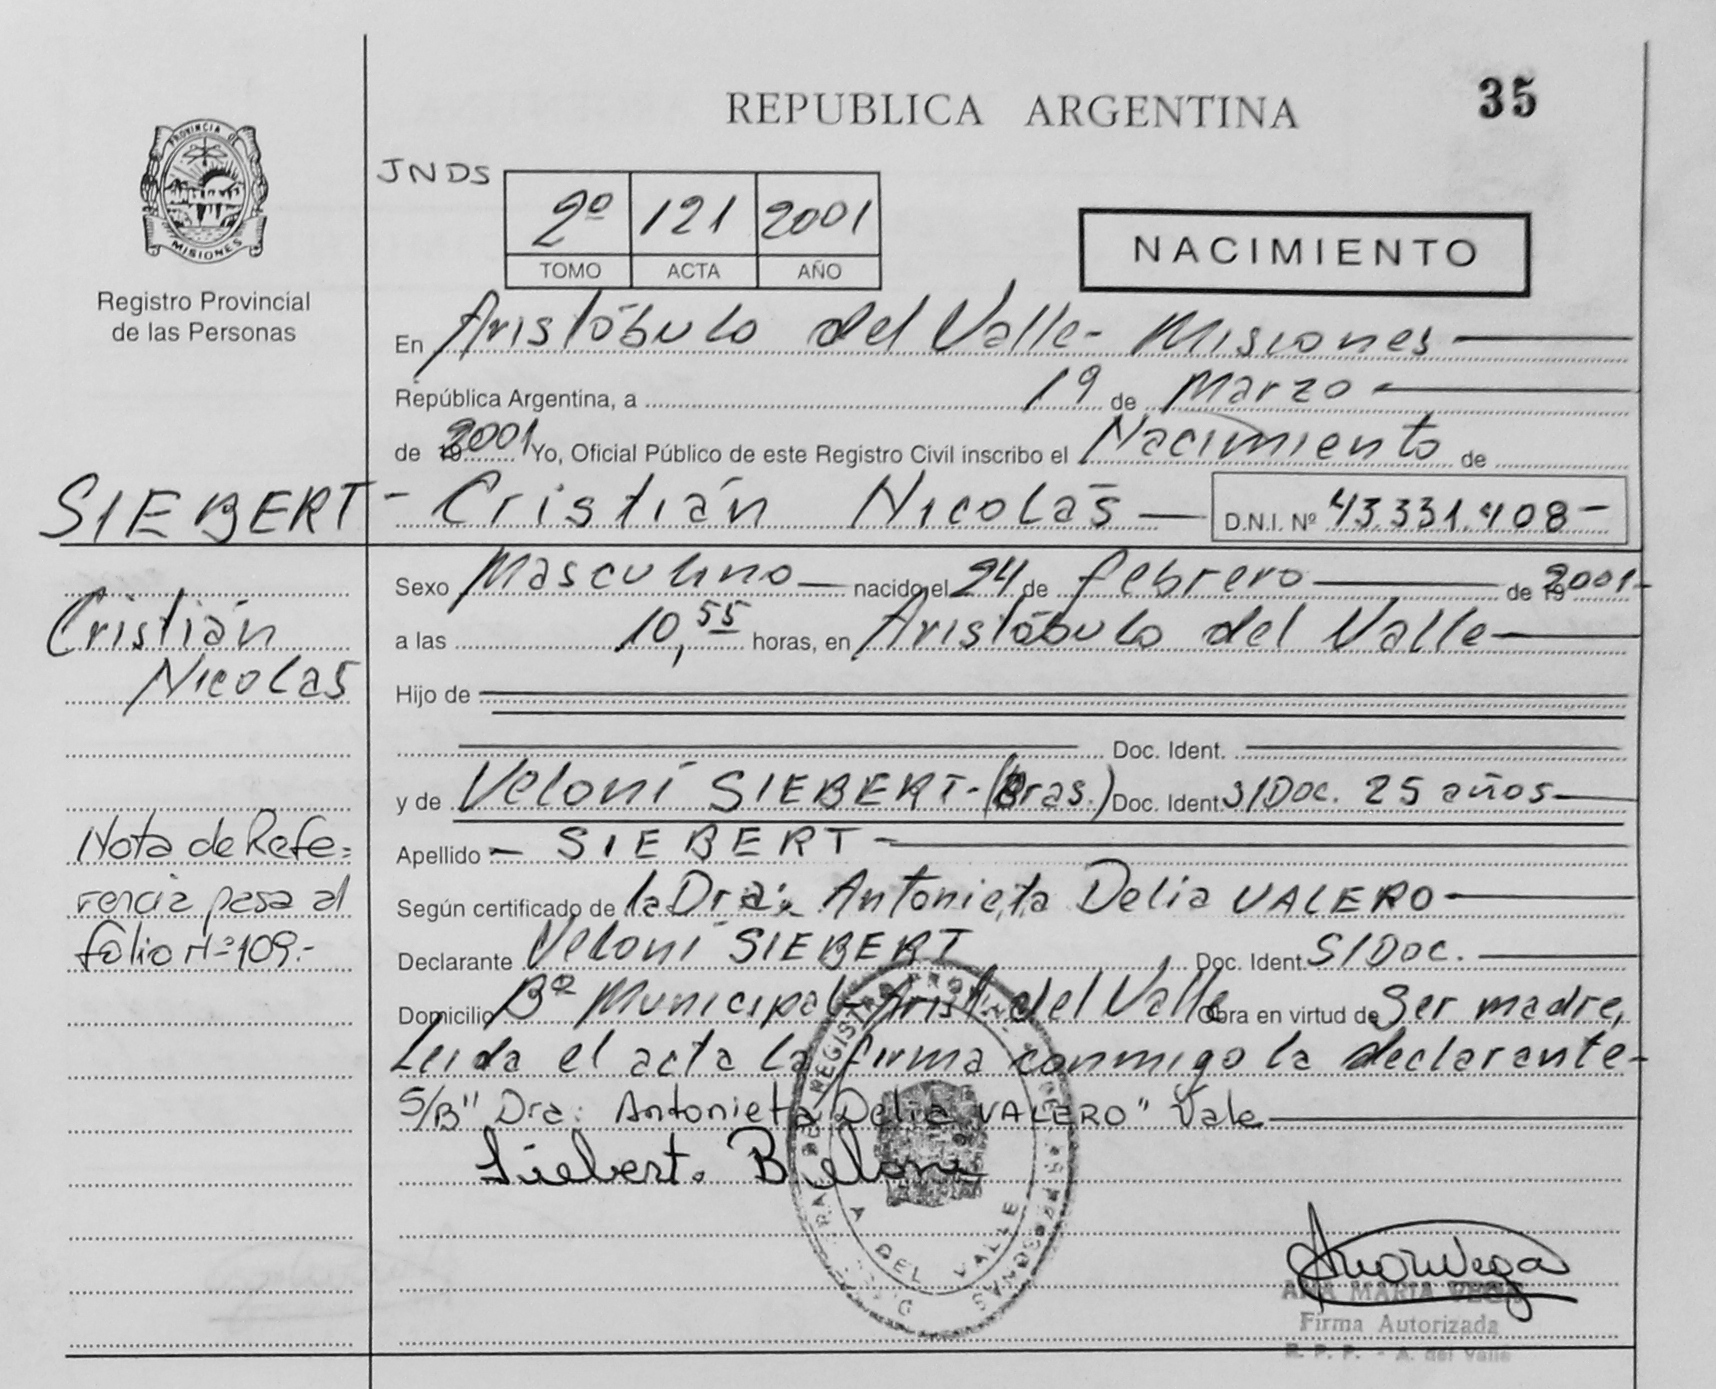 REPUBLICA ARGENTINA
35
PROVINCIA DE
MISIONES
Registro Provincial
de las Personas
JNDS
2º 121 2001
TOMO ACTA AÑO
NACIMIENTO
En Aristóbulo del Valle- Misiones
República Argentina, a 19 de Marzo
de 2001 Yo, Oficial Público de este Registro Civil inscribo el Nacimiento de
SIEBERT - Cristián Nicolás D.N.I. Nº 43.331.408-
Sexo Masculino nacido el 24 de febrero de 2001-
Cristián
Nicolas
a las 10,55 horas, en Aristóbulo del Valle
Hijo de
Doc. Ident.
y de Veloní SIEBERT- (Bras.) Doc. Ident. S/Doc. 25 años
Apellido - SIEBERT -
Nota de Refe=
rencia pasa al
folio nº 109.-
Según certificado de la Dra: Antonieta Delia VALERO
Declarante Veloní SIEBERT Doc. Ident. S/Doc.
Domicilio Bº Municipal- Arist. del Valle Obra en virtud de Ser madre,
Leída el acta la firma conmigo la declarante-
S/B" Dra: Antonieta Delia VALERO" Vale
Siebert. Beloni
REGISTRO
A DEL VALLE
ANA MARIA VEGA
Firma Autorizada
R. P. P. - A. del Valle